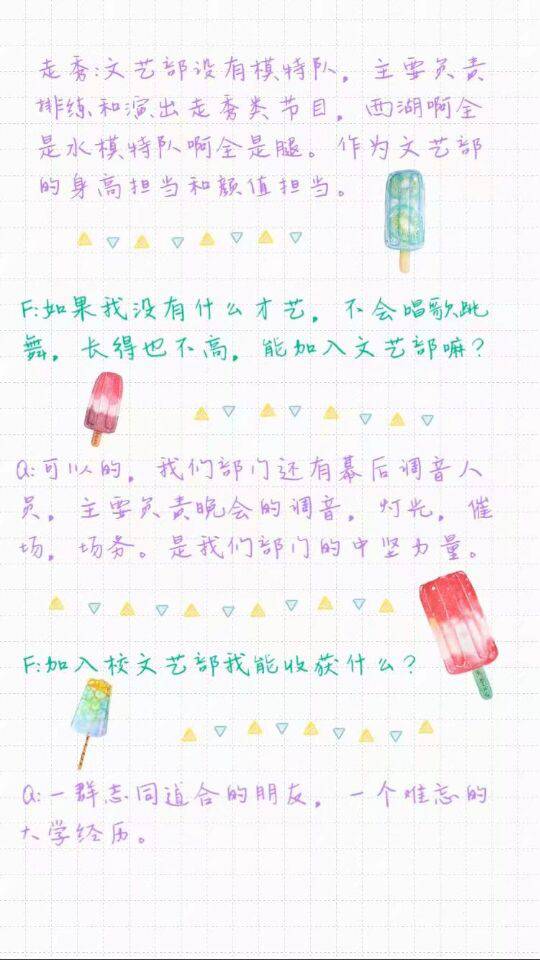 走秀:文艺部设有模特队，主要负责
排练和演出走秀类节目，西湖啊全
是水模特队啊全是腿。作为文艺部
的身高担当和颜值担当。
F:如果我没有什么才艺，不会唱歌跳
舞，长得也不高，能加入文艺部嘛?
Q:可以的，我们部门还有幕后调音人
员，主要负责晚会的调音，灯光，催
场，场务。是我们部门的中坚力量。
F:加入校文艺部我能收获什么?
Q:一群志同道合的朋友，一个难忘的
大学经历。